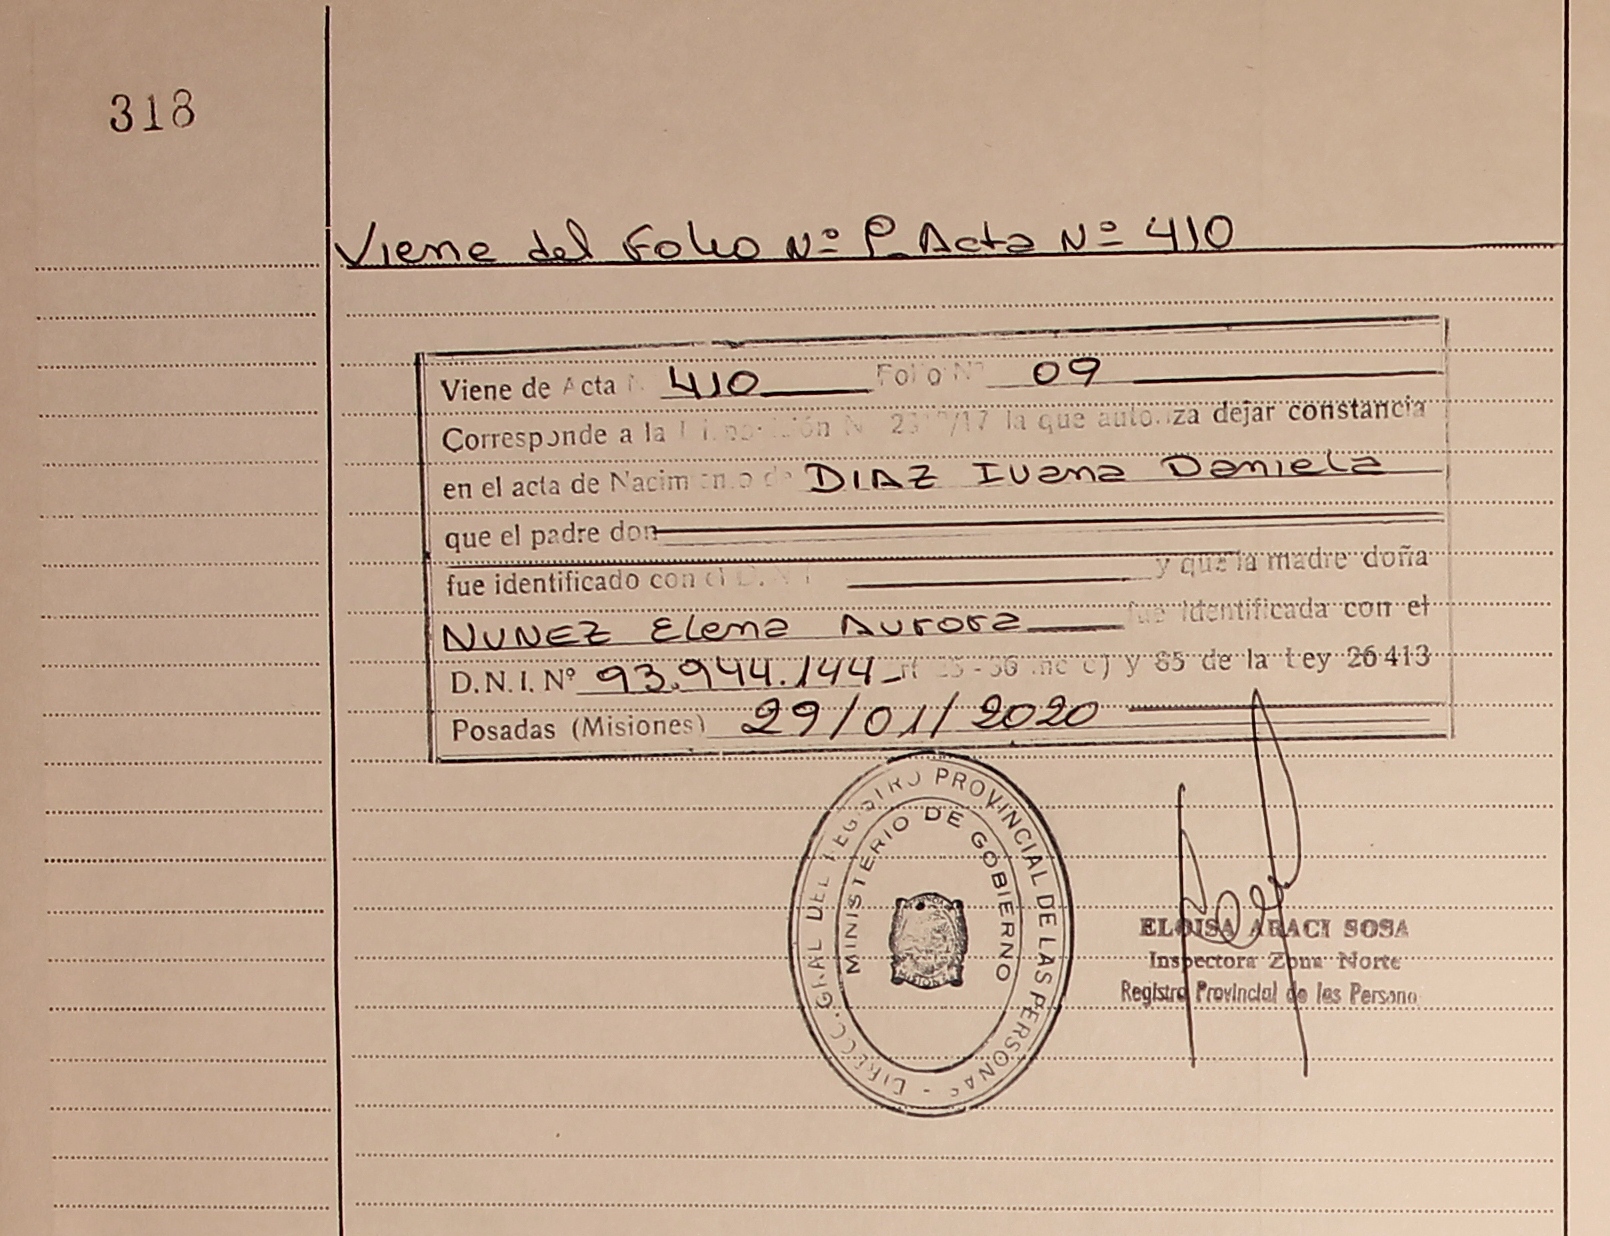 318
Viene del Folio Nº 9 Acta Nº 410
Viene de Acta N 410 Folio Nº 09
Corresponde a la Disposición N /17 la que autoriza dejar constancia
en el acta de Nacimiento de DIAZ Ivana Daniela
que el padre don
fue identificado con el D.N.I y que la madre doña
NUNEZ Elena Aurora fue identificada con el
D.N.I. Nº 93.944.144 inc c) y 85 de la Ley 26413
Posadas (Misiones) 29/01/2020
DIRECC. GRAL DEL REGISTRO PROVINCIAL DE LAS PERSONAS -
MINISTERIO DE GOBIERNO
ELOISA ARACI SOSA
Inspectora Zona Norte
Registro Provincial de las Persona